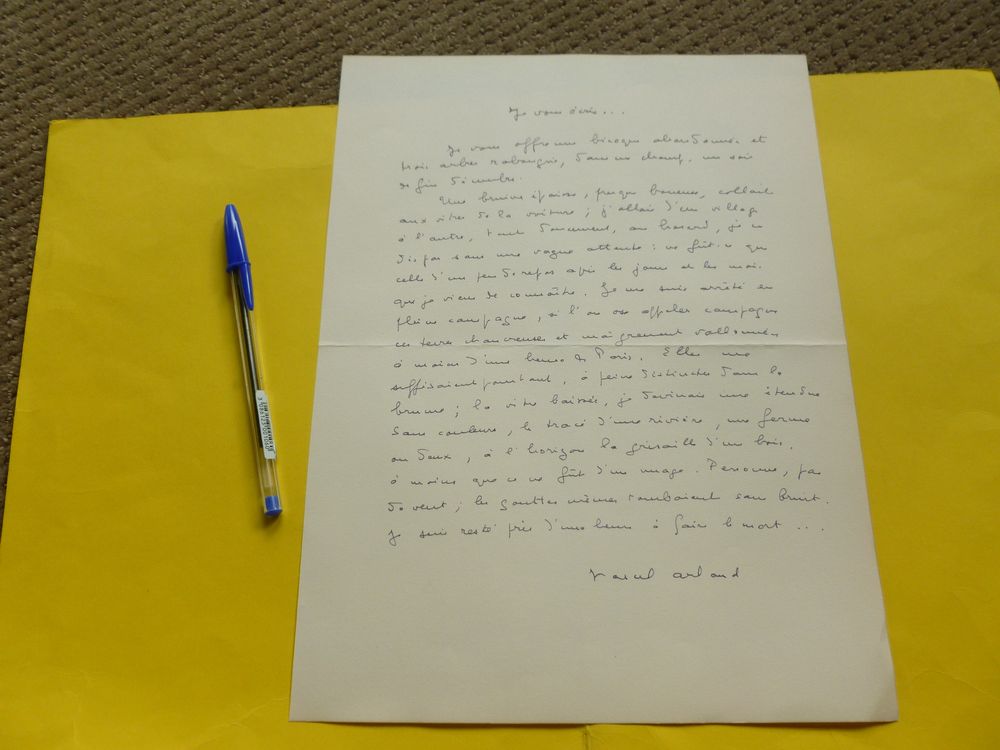 Je vous écris...
Je vous offre une bicoque abandonnée et
trois arbres rabougris, dans un champ, un soir
de fin décembre.
Une bruine épaisse, presque boueuse, collait
aux vitres de la voiture ; j'allais d'un village
à l'autre, tout doucement, au hasard, je ne
dis pas sans une vague attente : ne fût-ce que
celle d'un peu de repos après les jours et les mois
que je viens de connaître. Je me suis arrêté en
pleine campagne, si l'on ose appeler campagne
ces terres chancreuses et maigrement vallonnées
à moins d'une heure de Paris. Elles me
suffisaient pourtant, à peine distinctes dans la
brume ; la vitre baissée, je devinais une étendue
sans couleur, le tracé d'une rivière, une ferme
ou deux, à l'horizon la grisaille d'un bois,
à moins que ce ne fût d'un nuage. Personne, pas
de vent ; les gouttes mêmes tombaient sans bruit.
Je suis resté près d'une heure à faire le mort ...
Marcel Arland